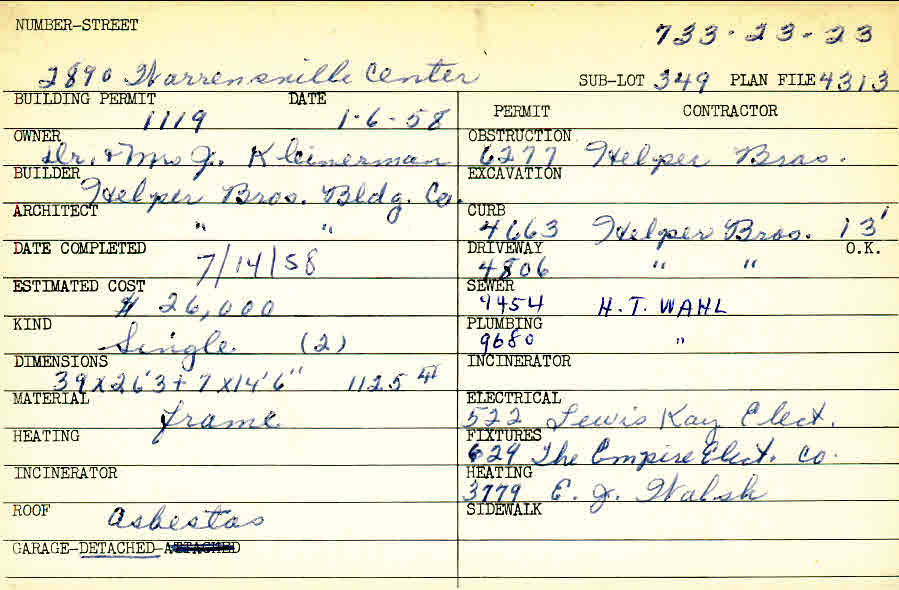 NUMBER-STREET
733-23-23
2890 Warrensville Center
SUB-LOT 349 PLAN FILE 4313
BUILDING PERMIT DATE
1119 1-6-58
OWNER
Dr. & Mrs J. Kleinerman
BUILDER
Helper Bros. Bldg. Co.
ARCHITECT
" "
DATE COMPLETED
7/14/58
ESTIMATED COST
$ 26,000
KIND
Single (2)
DIMENSIONS
39 x 26'3 + 7 x 14'6" 1125
MATERIAL
frame
HEATING
INCINERATOR
ROOF
asbestas
GARAGE-DETACHED-ATTACHED
PERMIT CONTRACTOR
OBSTRUCTION
6277 Helper Bros.
EXCAVATION
CURB
4663 Helper Bros. 13'
DRIVEWAY O.K.
4806 " "
SEWER
9454 H.T. WAHL
PLUMBING
9680 "
INCINERATOR
ELECTRICAL
522 Lewis Kay Elect.
FIXTURES
629 The Empire Elect. Co.
HEATING
3779 E. J. Walsh
SIDEWALK